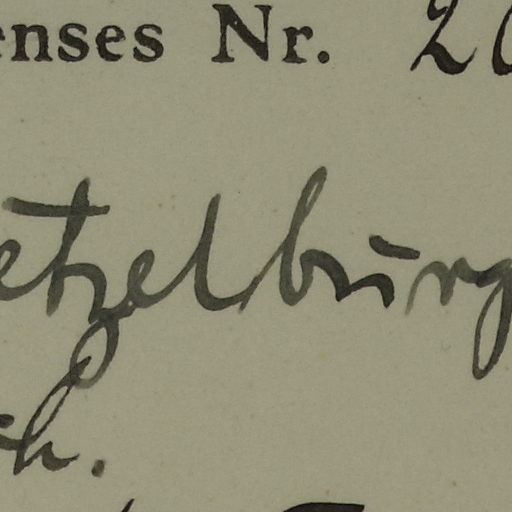 enses Nr. 20
etzelburg
ch.